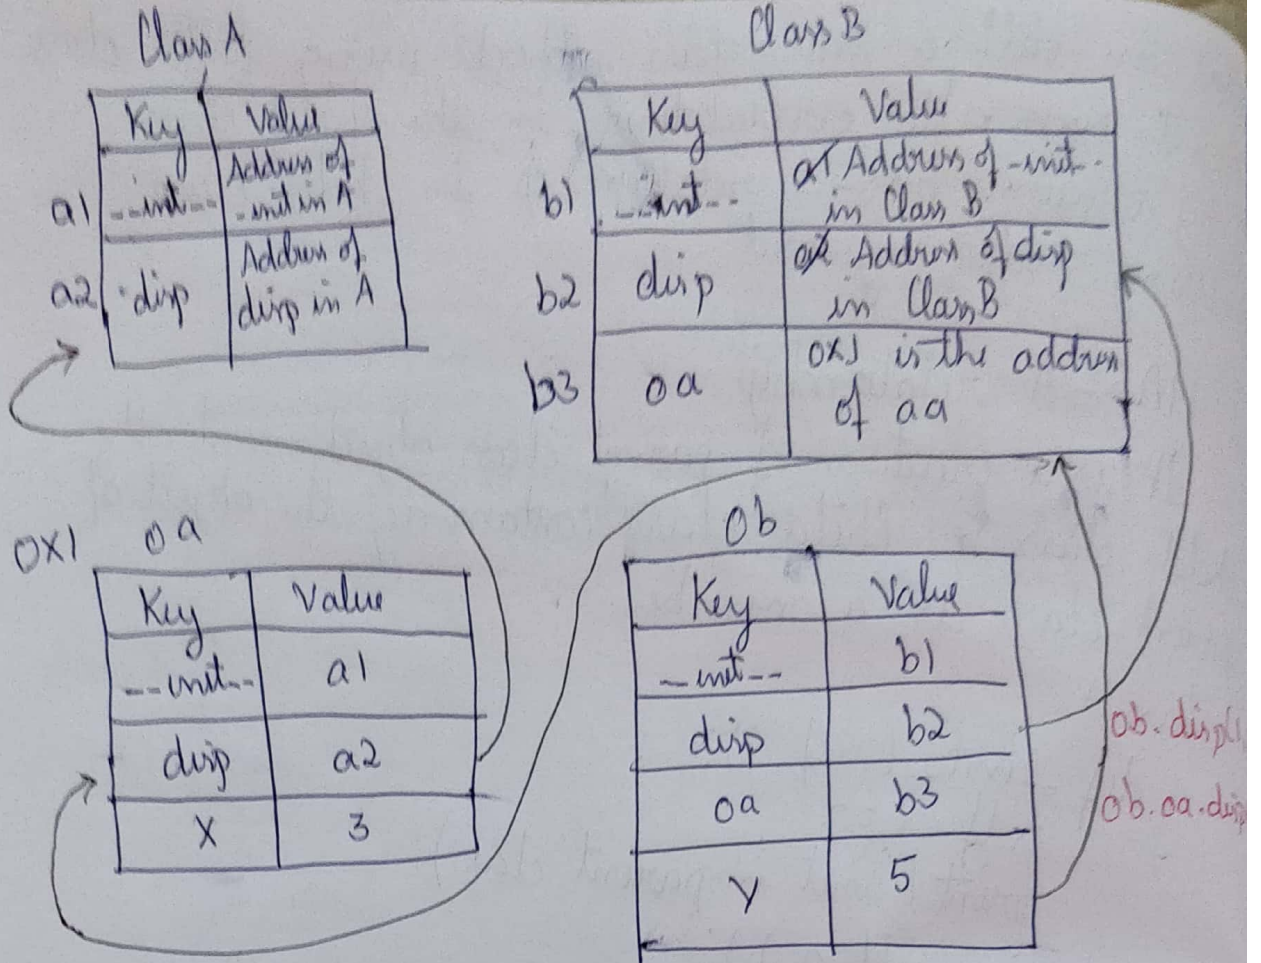 Class A
Key Value
a1 __init__ Address of
_init in A
a2 disp Address of
disp in A
Class B
Key Value
b1 __init__ Address of _init_
in Class B
b2 disp Address of disp
in Class B
b3 oa 0x1 is the address
of aa
0x1 oa
Key Value
__init__ a1
disp a2
X 3
ob
Key Value
__init__ b1
disp b2
oa b3
Y 5
ob.disp(
ob.oa.disp